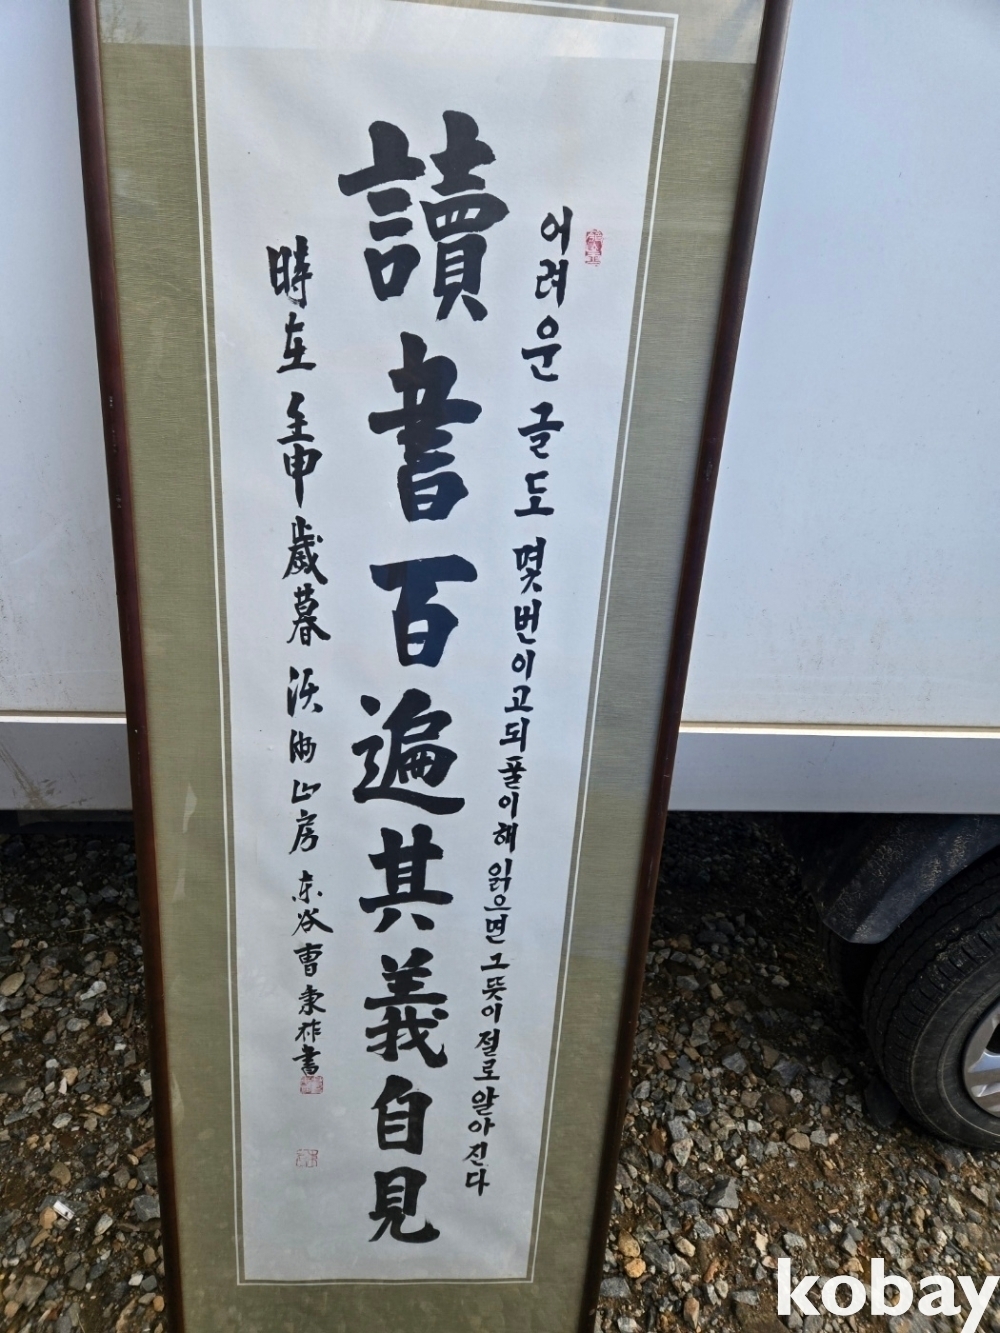 어려운 글도 몇번이고되풀이해읽으면그뜻이절로알아진다
讀書百遍其義自見
時在壬申歲暮 山房 東谷曹 書
kobay